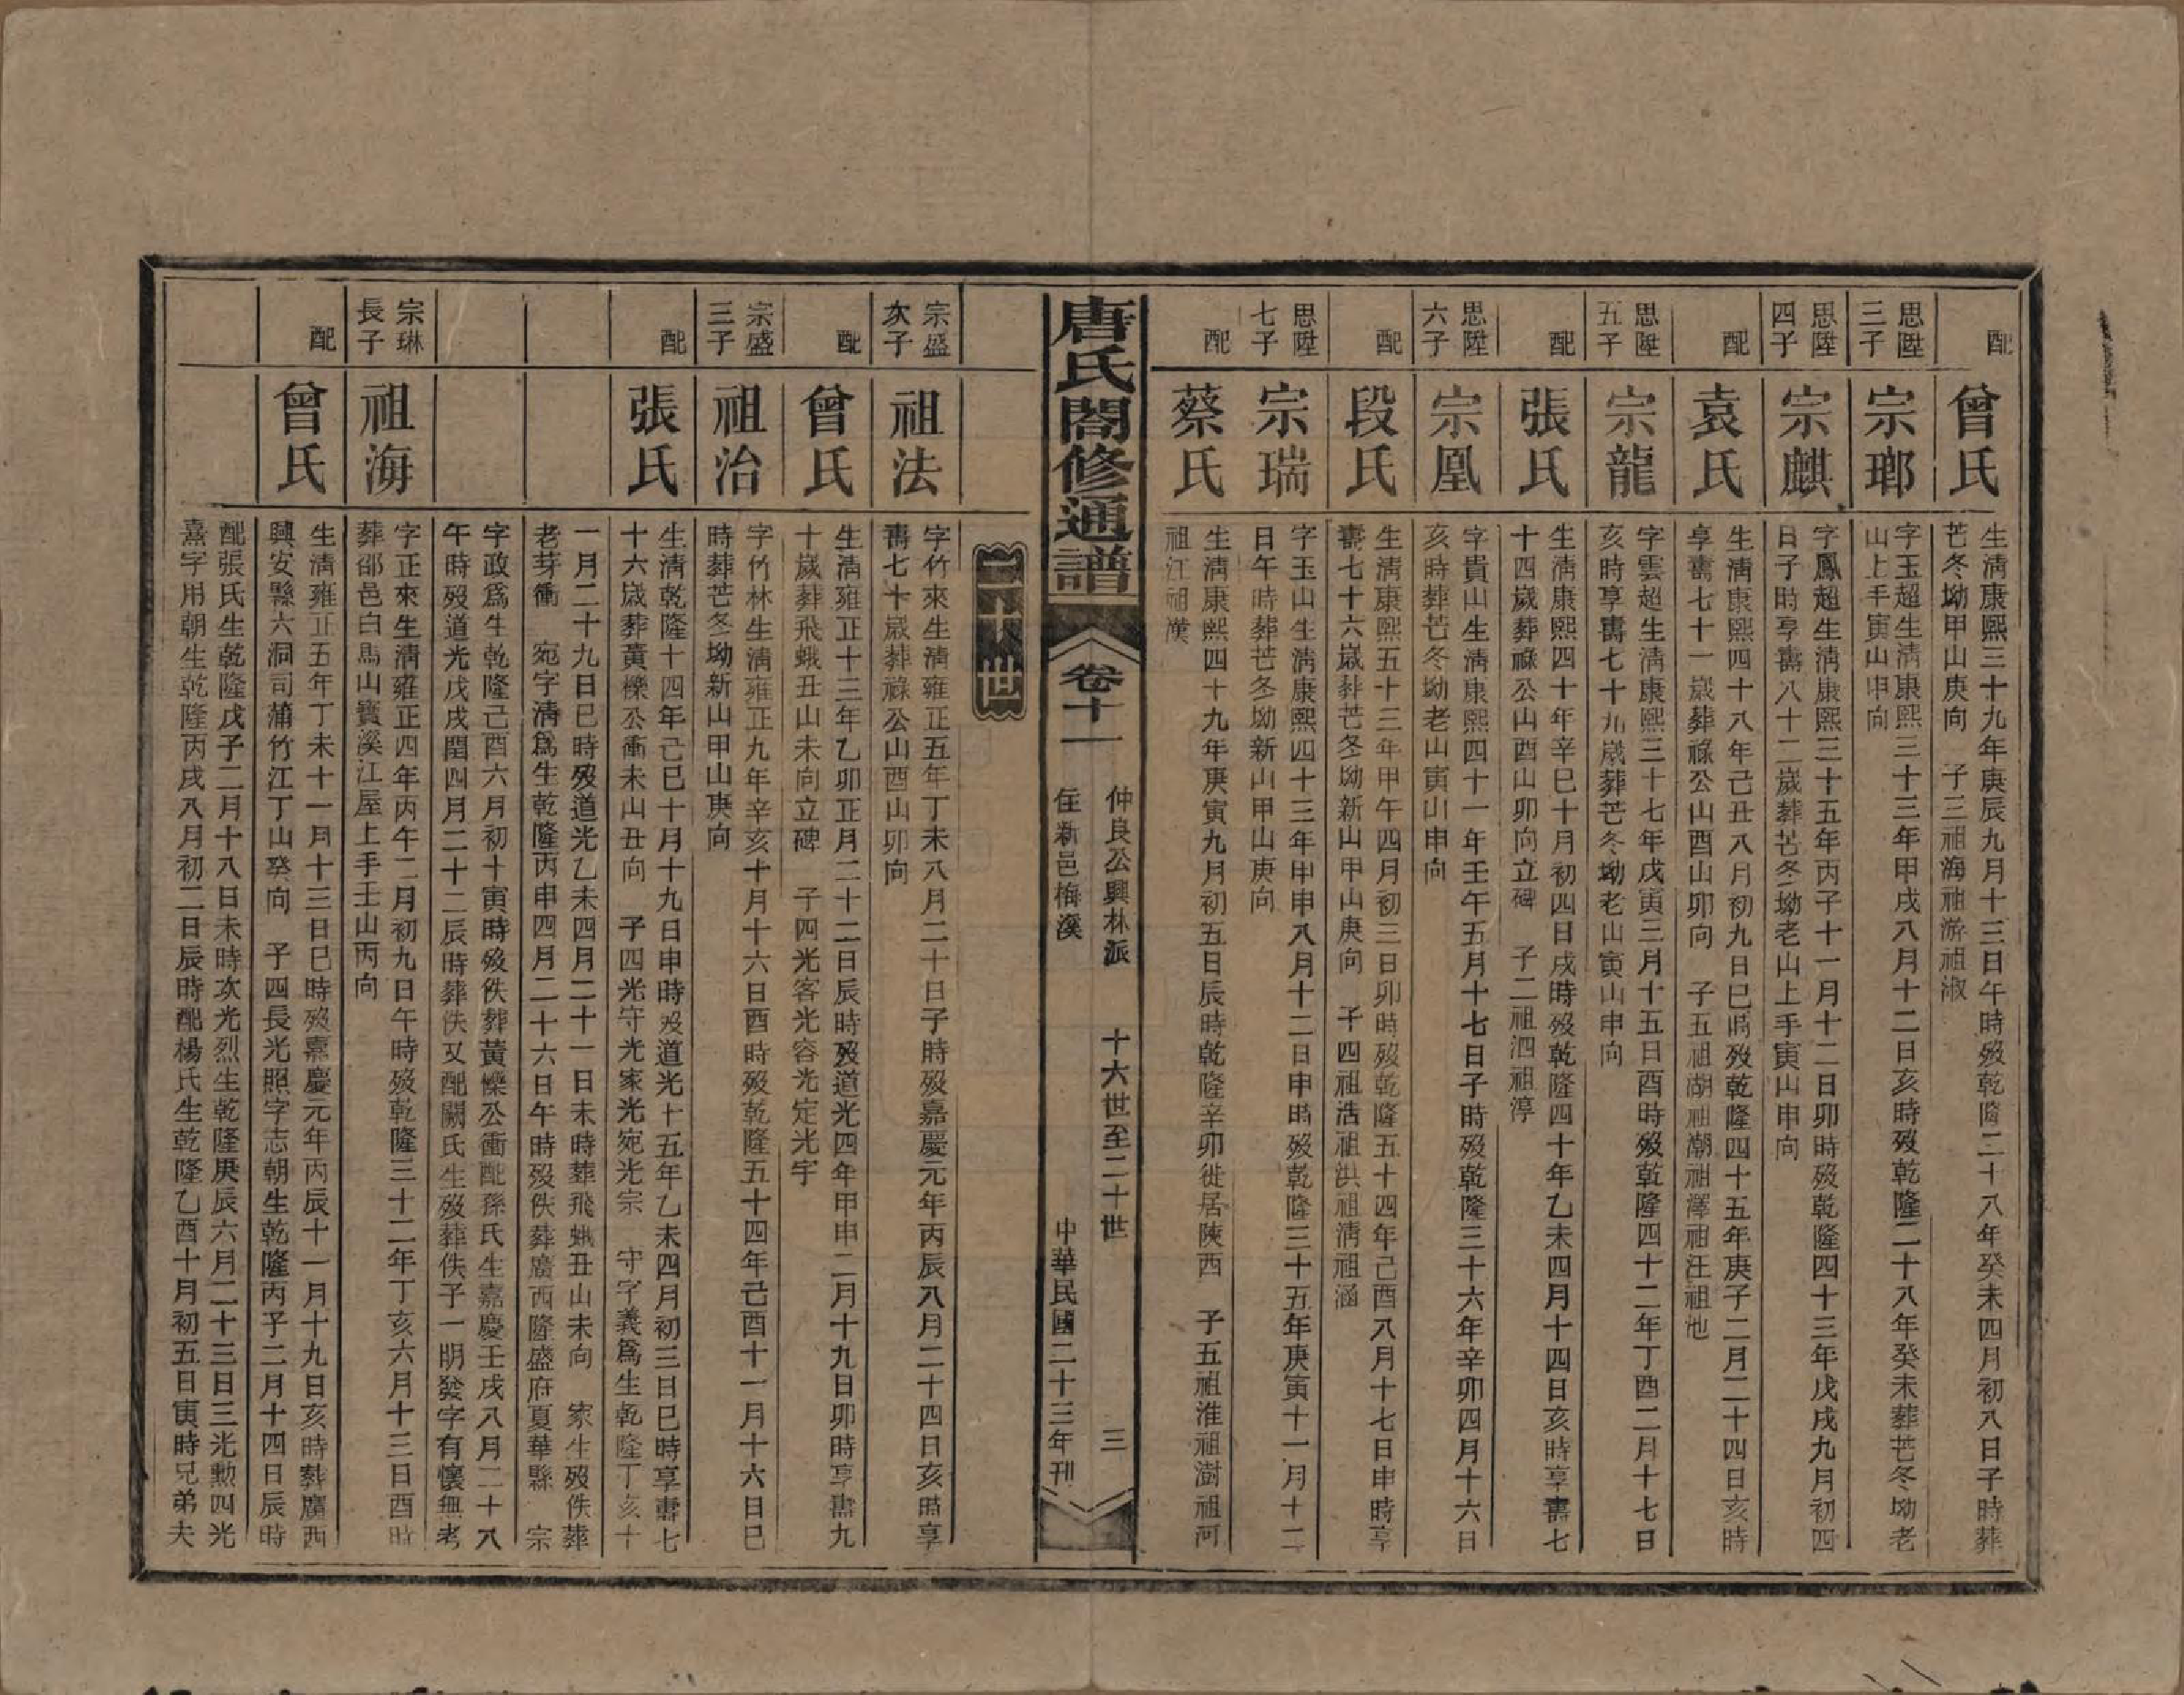 配
曾氏
生清康熙三十九年庚辰九月十三日午時歿乾隆二十八年癸未四月初八日子時葬
芒冬坳甲山庚向　子三祖海祖游祖淑
思陞
三子
宗瑯
字玉超生清康熙三十三年甲戌八月十二日亥時歿乾隆二十八年癸未葬芒冬坳老
山上手寅山申向
思陞
四子
宗麒
字鳳超生清康熙三十五年丙子十一月十二日卯時歿乾隆四十三年戊戌九月初四
日子時享壽八十二歲葬芒冬坳老山上手寅山申向
配
袁氏
生清康熙四十八年己丑八月初九日巳時歿乾隆四十五年庚子二月二十四日亥時
享壽七十一歲葬祿公山酉山卯向　子五祖湖祖潮祖澤祖汪祖他
思陞
五子
宗龍
字雲超生清康熙三十七年戊寅三月十五日酉時歿乾隆四十二年丁酉二月十七日
亥時享壽七十九歲葬芒冬坳老山寅山申向
配
張氏
生清康熙四十年辛巳十月初四日戌時歿乾隆四十年乙未四月十四日亥時享壽七
十四歲葬祿公山酉山卯向立碑　子二祖泗祖渟
思陞
六子
宗凰
字貴山生清康熙四十一年壬午五月十七日子時歿乾隆三十六年辛卯四月十六日
亥時葬芒冬坳老山寅山申向
配
段氏
生清康熙五十三年甲午四月初三日卯時歿乾隆五十四年己酉八月十七日申時享
壽七十六歲葬芒冬坳新山甲山庚向　子四祖浩祖洪祖清祖涵
思陞
七子
宗瑞
字玉山生清康熙四十三年甲申八月十二日申時歿乾隆三十五年庚寅十一月十二
日午時葬芒冬坳新山甲山庚向
配
蔡氏
生清康熙四十九年庚寅九月初五日辰時乾隆辛卯徙居陝西　子五祖淮祖澍祖河
祖江祖漢
唐氏閤修通譜
卷十一
仲良公興林派　十六世至二十世　三
住新邑梅溪　中華民國二十三年刊
二十世
宗盛
次子
祖法
字竹來生清雍正五年丁未八月二十日子時歿嘉慶元年丙辰八月二十四日亥時享
壽七十歲葬祿公山酉山卯向
配
曾氏
生清雍正十三年乙卯正月二十二日辰時歿道光四年甲申二月十九日卯時享壽九
十歲葬飛蛾丑山未向立碑　子四光客光容光定光宇
宗盛
三子
祖治
字竹林生清雍正九年辛亥十月十六日酉時歿乾隆五十四年己酉十一月十六日巳
時葬芒冬坳新山甲山庚向
配
張氏
生清乾隆十四年己巳十月十九日申時歿道光十五年乙未四月初三日巳時享壽七
十六歲葬黃櫟公衝未山丑向　子四光守光家光宛光宗　守字義爲生乾隆丁亥十
一月二十九日巳時歿道光乙未四月二十一日未時葬飛蛾丑山未向　家生歿佚葬
老芽衝　宛字清爲生乾隆丙申四月二十六日午時歿佚葬廣西隆盛府夏華縣　宗
字政爲生乾隆己酉六月初十寅時歿佚葬黃櫟公衝配孫氏生嘉慶壬戌八月二十八
午時歿道光戊戌閏四月二十二辰時葬佚又配闕氏生歿葬佚子一明發字有懷無考
宗琳
長子
祖海
字正來生清雍正四年丙午二月初九日午時歿乾隆三十二年丁亥六月十三日酉時
葬邵邑白馬山寶溪江屋上手壬山丙向
配
曾氏
生清雍正五年丁未十一月十三日巳時歿嘉慶元年丙辰十一月十九日亥時葬廣西
興安縣六洞司蒲竹江丁山癸向　子四長光照字志朝生乾隆丙子二月十四日辰時
配張氏生乾隆戊子二月十八日未時次光烈生乾隆庚辰六月二十三日三光勲四光
熹字用朝生乾隆丙戌八月初二日辰時配楊氏生乾隆乙酉十月初五日寅時兄弟夫